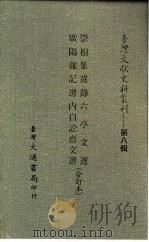 臺灣文獻史料叢刊——第八輯
崇相集選錄六亭文選
廣陽雜記選內自訟齋文選（合訂本）
臺灣大通書局印行